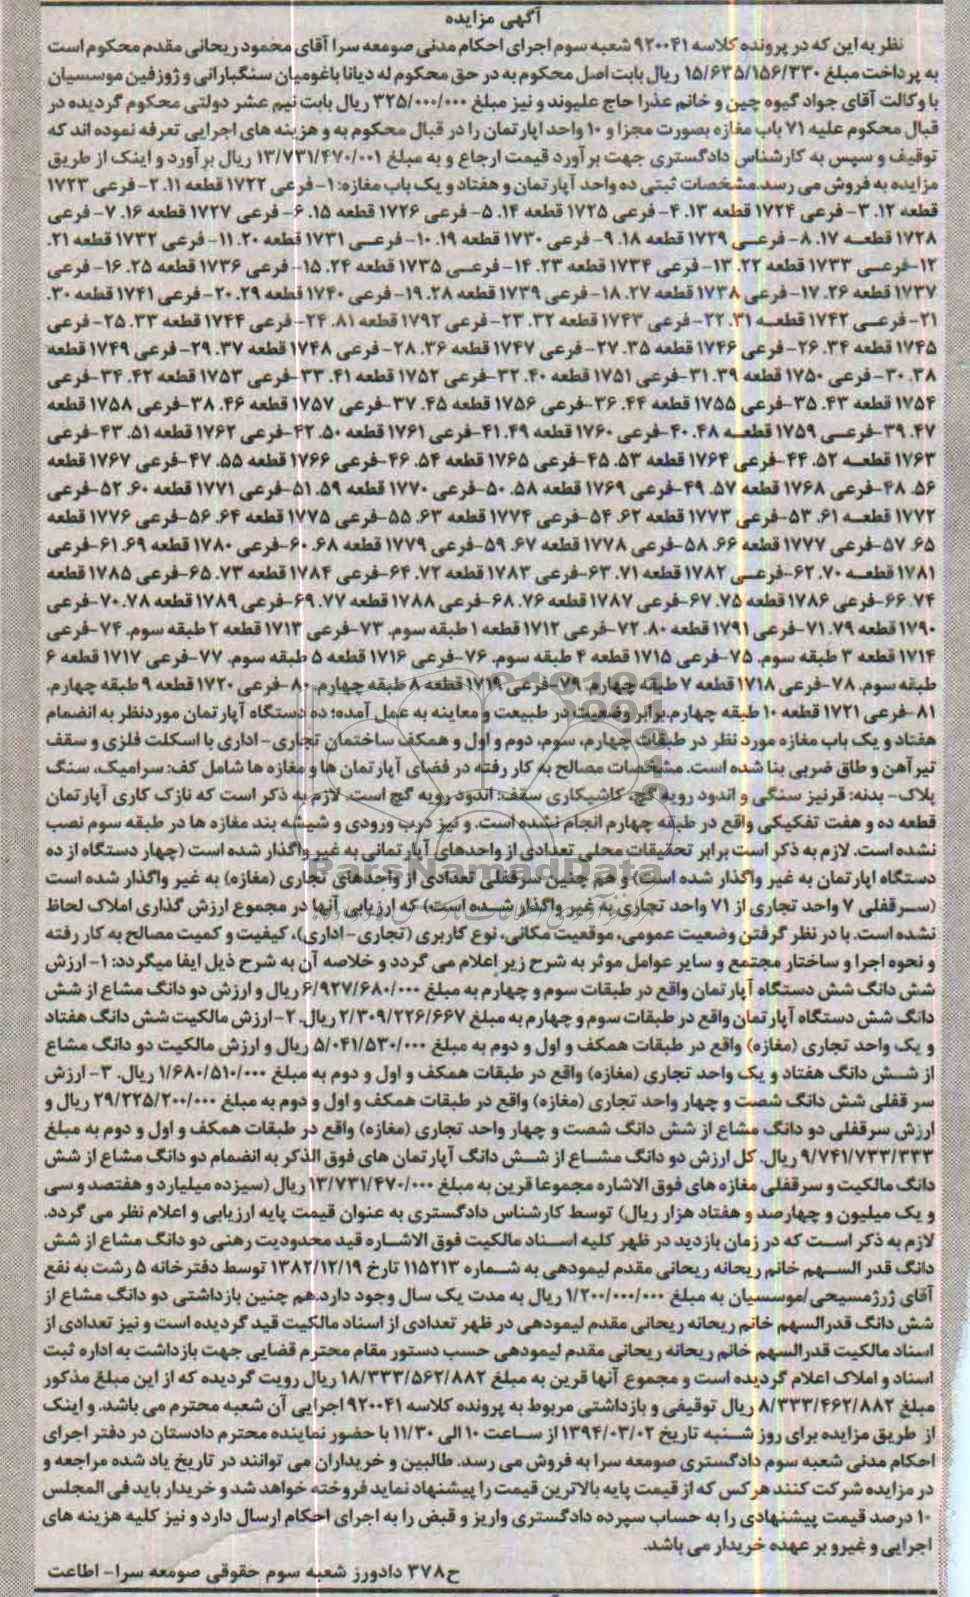 آگهی مزایده
نظر به این که در پرونده کلاسه ۹۲۰۰۴۱ شعبه سوم اجرای احکام مدنی صومعه سرا آقای محمود ریحانی مقدم محکوم است
به پرداخت مبلغ ۱۵/۶۳۵/۱۵۶/۳۳۰ ریال بابت اصل محکوم به در حق محکوم له دیانا باغومیان سنگبارانی و ژوزفین موسسیان
با وکالت آقای جواد گیوه چین و خانم عذرا حاج علیوند و نیز مبلغ ۳۲۵/۰۰۰/۰۰۰ ریال بابت نیم عشر دولتی محکوم گردیده در
قبال محکوم علیه ۷۱ باب مغازه بصورت مجزا و ۱۰ واحد اپارتمان را در قبال محکوم به و هزینه های اجرایی تعرفه نموده اند که
توقیف و سپس به کارشناس دادگستری جهت برآورد قیمت ارجاع و به مبلغ ۱۳/۷۳۱/۴۷۰/۰۰۱ ریال برآورد و اینک از طریق
مزایده به فروش می رسد.مشخصات ثبتی ده واحد آپارتمان و هفتاد و یک باب مغازه: ۱- فرعی ۱۷۲۲ قطعه ۱۱. ۲- فرعی ۱۷۲۳
قطعه ۱۲. ۳- فرعی ۱۷۲۴ قطعه ۱۳. ۴- فرعی ۱۷۲۵ قطعه ۱۴. ۵- فرعی ۱۷۲۶ قطعه ۱۵. ۶- فرعی ۱۷۲۷ قطعه ۱۶. ۷- فرعی
۱۷۲۸ قطعه ۱۷. ۸- فرعی ۱۷۲۹ قطعه ۱۸. ۹- فرعی ۱۷۳۰ قطعه ۱۹. ۱۰- فرعی ۱۷۳۱ قطعه ۲۰. ۱۱- فرعی ۱۷۳۲ قطعه ۲۱.
۱۲-فرعی ۱۷۳۳ قطعه ۲۲. ۱۳- فرعی ۱۷۳۴ قطعه ۲۳. ۱۴- فرعی ۱۷۳۵ قطعه ۲۴. ۱۵- فرعی ۱۷۳۶ قطعه ۲۵. ۱۶- فرعی
۱۷۳۷ قطعه ۲۶. ۱۷- فرعی ۱۷۳۸ قطعه ۲۷. ۱۸- فرعی ۱۷۳۹ قطعه ۲۸. ۱۹- فرعی ۱۷۴۰ قطعه ۲۹. ۲۰- فرعی ۱۷۴۱ قطعه ۳۰.
۲۱- فرعی ۱۷۴۲ قطعه ۳۱. ۲۲- فرعی ۱۷۴۳ قطعه ۳۲. ۲۳- فرعی ۱۷۹۲ قطعه ۸۱. ۲۴- فرعی ۱۷۴۴ قطعه ۳۳. ۲۵- فرعی
۱۷۴۵ قطعه ۳۴. ۲۶- فرعی ۱۷۴۶ قطعه ۳۵. ۲۷- فرعی ۱۷۴۷ قطعه ۳۶. ۲۸- فرعی ۱۷۴۸ قطعه ۳۷. ۲۹- فرعی ۱۷۴۹ قطعه
۳۸. ۳۰- فرعی ۱۷۵۰ قطعه ۳۹. ۳۱-فرعی ۱۷۵۱ قطعه ۴۰. ۳۲-فرعی ۱۷۵۲ قطعه ۴۱. ۳۳-فرعی ۱۷۵۳ قطعه ۴۲. ۳۴-فرعی
۱۷۵۴ قطعه ۴۳. ۳۵-فرعی ۱۷۵۵ قطعه ۴۴. ۳۶-فرعی ۱۷۵۶ قطعه ۴۵. ۳۷-فرعی ۱۷۵۷ قطعه ۴۶. ۳۸-فرعی ۱۷۵۸ قطعه
۴۷. ۳۹-فرعی ۱۷۵۹ قطعه ۴۸. ۴۰-فرعی ۱۷۶۰ قطعه ۴۹. ۴۱-فرعی ۱۷۶۱ قطعه ۵۰. ۴۲-فرعی ۱۷۶۲ قطعه ۵۱. ۴۳-فرعی
۱۷۶۳ قطعه ۵۲. ۴۴-فرعی ۱۷۶۴ قطعه ۵۳. ۴۵-فرعی ۱۷۶۵ قطعه ۵۴. ۴۶-فرعی ۱۷۶۶ قطعه ۵۵. ۴۷-فرعی ۱۷۶۷ قطعه
۵۶. ۴۸-فرعی ۱۷۶۸ قطعه ۵۷. ۴۹-فرعی ۱۷۶۹ قطعه ۵۸. ۵۰-فرعی ۱۷۷۰ قطعه ۵۹. ۵۱-فرعی ۱۷۷۱ قطعه ۶۰. ۵۲-فرعی
۱۷۷۲ قطعه ۶۱. ۵۳-فرعی ۱۷۷۳ قطعه ۶۲. ۵۴-فرعی ۱۷۷۴ قطعه ۶۳. ۵۵-فرعی ۱۷۷۵ قطعه ۶۴. ۵۶-فرعی ۱۷۷۶ قطعه
۶۵. ۵۷-فرعی ۱۷۷۷ قطعه ۶۶. ۵۸-فرعی ۱۷۷۸ قطعه ۶۷. ۵۹-فرعی ۱۷۷۹ قطعه ۶۸. ۶۰-فرعی ۱۷۸۰ قطعه ۶۹. ۶۱-فرعی
۱۷۸۱ قطعه ۷۰. ۶۲-فرعی ۱۷۸۲ قطعه ۷۱. ۶۳-فرعی ۱۷۸۳ قطعه ۷۲. ۶۴-فرعی ۱۷۸۴ قطعه ۷۳. ۶۵-فرعی ۱۷۸۵ قطعه
۷۴. ۶۶-فرعی ۱۷۸۶ قطعه ۷۵. ۶۷-فرعی ۱۷۸۷ قطعه ۷۶. ۶۸-فرعی ۱۷۸۸ قطعه ۷۷. ۶۹-فرعی ۱۷۸۹ قطعه ۷۸. ۷۰-فرعی
۱۷۹۰ قطعه ۷۹. ۷۱-فرعی ۱۷۹۱ قطعه ۸۰. ۷۲-فرعی ۱۷۱۲ قطعه ۱ طبقه سوم. ۷۳-فرعی ۱۷۱۳ قطعه ۲ طبقه سوم. ۷۴-فرعی
۱۷۱۴ قطعه ۳ طبقه سوم. ۷۵-فرعی ۱۷۱۵ قطعه ۴ طبقه سوم. ۷۶-فرعی ۱۷۱۶ قطعه ۵ طبقه سوم. ۷۷-فرعی ۱۷۱۷ قطعه ۶
طبقه سوم. ۷۸-فرعی ۱۷۱۸ قطعه ۷ طبقه چهارم. ۷۹-فرعی ۱۷۱۹ قطعه ۸ طبقه چهارم. ۸۰-فرعی ۱۷۲۰ قطعه ۹ طبقه چهارم.
۸۱-فرعی ۱۷۲۱ قطعه ۱۰ طبقه چهارم.برابر وضعیت در طبیعت و معاینه به عمل آمده؛ ده دستگاه آپارتمان موردنظر به انضمام
هفتاد و یک باب مغازه مورد نظر در طبقات چهارم، سوم، دوم و اول و همکف ساختمان تجاری- اداری با اسکلت فلزی و سقف
تیرآهن و طاق ضربی بنا شده است. مشخصات مصالح به کار رفته در فضای آپارتمان ها و مغازه ها شامل کف: سرامیک، سنگ
پلاک- بدنه: قرنیز سنگی و اندود رویه گچ، کاشیکاری سقف: اندود رویه گچ است. لازم به ذکر است که نازک کاری آپارتمان
قطعه ده و هفت تفکیکی واقع در طبقه چهارم انجام نشده است. و نیز درب ورودی و شیشه بند مغازه ها در طبقه سوم نصب
نشده است. لازم به ذکر است برابر تحقیقات محلی تعدادی از واحدهای آپارتمانی به غیر واگذار شده است (چهار دستگاه از ده
دستگاه اپارتمان به غیر واگذار شده است) و هم چنین سرقفلی تعدادی از واحدهای تجاری (مغازه) به غیر واگذار شده است
(سرقفلی ۷ واحد تجاری از ۷۱ واحد تجاری به غیر واگذار شده است) که ارزیابی آنها در مجموع ارزش گذاری املاک لحاظ
نشده است. با در نظر گرفتن وضعیت عمومی، موقعیت مکانی، نوع کاربری (تجاری- اداری)، کیفیت و کمیت مصالح به کار رفته
و نحوه اجرا و ساختار مجتمع و سایر عوامل موثر به شرح زیر اعلام می گردد و خلاصه آن به شرح ذیل ایفا میگردد: ۱- ارزش
شش دانگ شش دستگاه آپارتمان واقع در طبقات سوم و چهارم به مبلغ ۶/۹۲۷/۶۸۰/۰۰۰ ریال و ارزش دو دانگ مشاع از شش
دانگ شش دستگاه آپارتمان واقع در طبقات سوم و چهارم به مبلغ ۲/۳۰۹/۲۲۶/۶۶۷ ریال. ۲- ارزش مالکیت شش دانگ هفتاد
و یک واحد تجاری (مغازه) واقع در طبقات همکف و اول و دوم به مبلغ ۵/۰۴۱/۵۳۰/۰۰۰ ریال و ارزش مالکیت دو دانگ مشاع
از شش دانگ هفتاد و یک واحد تجاری (مغازه) واقع در طبقات همکف و اول و دوم به مبلغ ۱/۶۸۰/۵۱۰/۰۰۰ ریال. ۳- ارزش
سر قفلی شش دانگ شصت و چهار واحد تجاری (مغازه) واقع در طبقات همکف و اول و دوم به مبلغ ۲۹/۲۲۵/۲۰۰/۰۰۰ ریال و
ارزش سرقفلی دو دانگ مشاع از شش دانگ شصت و چهار واحد تجاری (مغازه) واقع در طبقات همکف و اول و دوم به مبلغ
۹/۷۴۱/۷۳۳/۳۳۳ ریال. کل ارزش دو دانگ مشاع از شش دانگ آپارتمان های فوق الذکر به انضمام دو دانگ مشاع از شش
دانگ مالکیت و سرقفلی مغازه های فوق الاشاره مجموعا قرین به مبلغ ۱۳/۷۳۱/۴۷۰/۰۰۰ ریال (سیزده میلیارد و هفتصد و سی
و یک میلیون و چهارصد و هفتاد هزار ریال) توسط کارشناس دادگستری به عنوان قیمت پایه ارزیابی و اعلام نظر می گردد.
لازم به ذکر است که در زمان بازدید در ظهر کلیه اسناد مالکیت فوق الاشاره قید محدودیت رهنی دو دانگ مشاع از شش
دانگ قدر السهم خانم ریحانه ریحانی مقدم لیمودهی به شماره ۱۱۵۲۱۳ تارخ ۱۳۸۲/۱۲/۱۹ توسط دفترخانه ۵ رشت به نفع
آقای ژرژمسیحی/موسسیان به مبلغ ۱/۲۰۰/۰۰۰/۰۰۰ ریال به مدت یک سال وجود دارد.هم چنین بازداشتی دو دانگ مشاع از
شش دانگ قدرالسهم خانم ریحانه ریحانی مقدم لیمودهی در ظهر تعدادی از اسناد مالکیت قید گردیده است و نیز تعدادی از
اسناد مالکیت قدرالسهم خانم ریحانه ریحانی مقدم لیمودهی حسب دستور مقام محترم قضایی جهت بازداشت به اداره ثبت
اسناد و املاک اعلام گردیده است و مجموع آنها قرین به مبلغ ۱۸/۳۳۳/۵۶۲/۸۸۲ ریال رویت گردیده که از این مبلغ مذکور
مبلغ ۸/۳۳۳/۴۶۲/۸۸۲ ریال توقیفی و بازداشتی مربوط به پرونده کلاسه ۹۲۰۰۴۱ اجرایی آن شعبه محترم می باشد. و اینک
از طریق مزایده برای روز شنبه تاریخ ۱۳۹۴/۰۳/۰۲ از ساعت ۱۰ الی ۱۱/۳۰ با حضور نماینده محترم دادستان در دفتر اجرای
احکام مدنی شعبه سوم دادگستری صومعه سرا به فروش می رسد. طالبین و خریداران می توانند در تاریخ یاد شده مراجعه و
در مزایده شرکت کنند هرکس که از قیمت پایه بالاترین قیمت را پیشنهاد نماید فروخته خواهد شد و خریدار باید فی المجلس
۱۰ درصد قیمت پیشنهادی را به حساب سپرده دادگستری واریز و قبض را به اجرای احکام ارسال دارد و نیز کلیه هزینه های
اجرایی و غیرو بر عهده خریدار می باشد.
ح۳۷۸ دادورز شعبه سوم حقوقی صومعه سرا- اطاعت
ParsNamadData